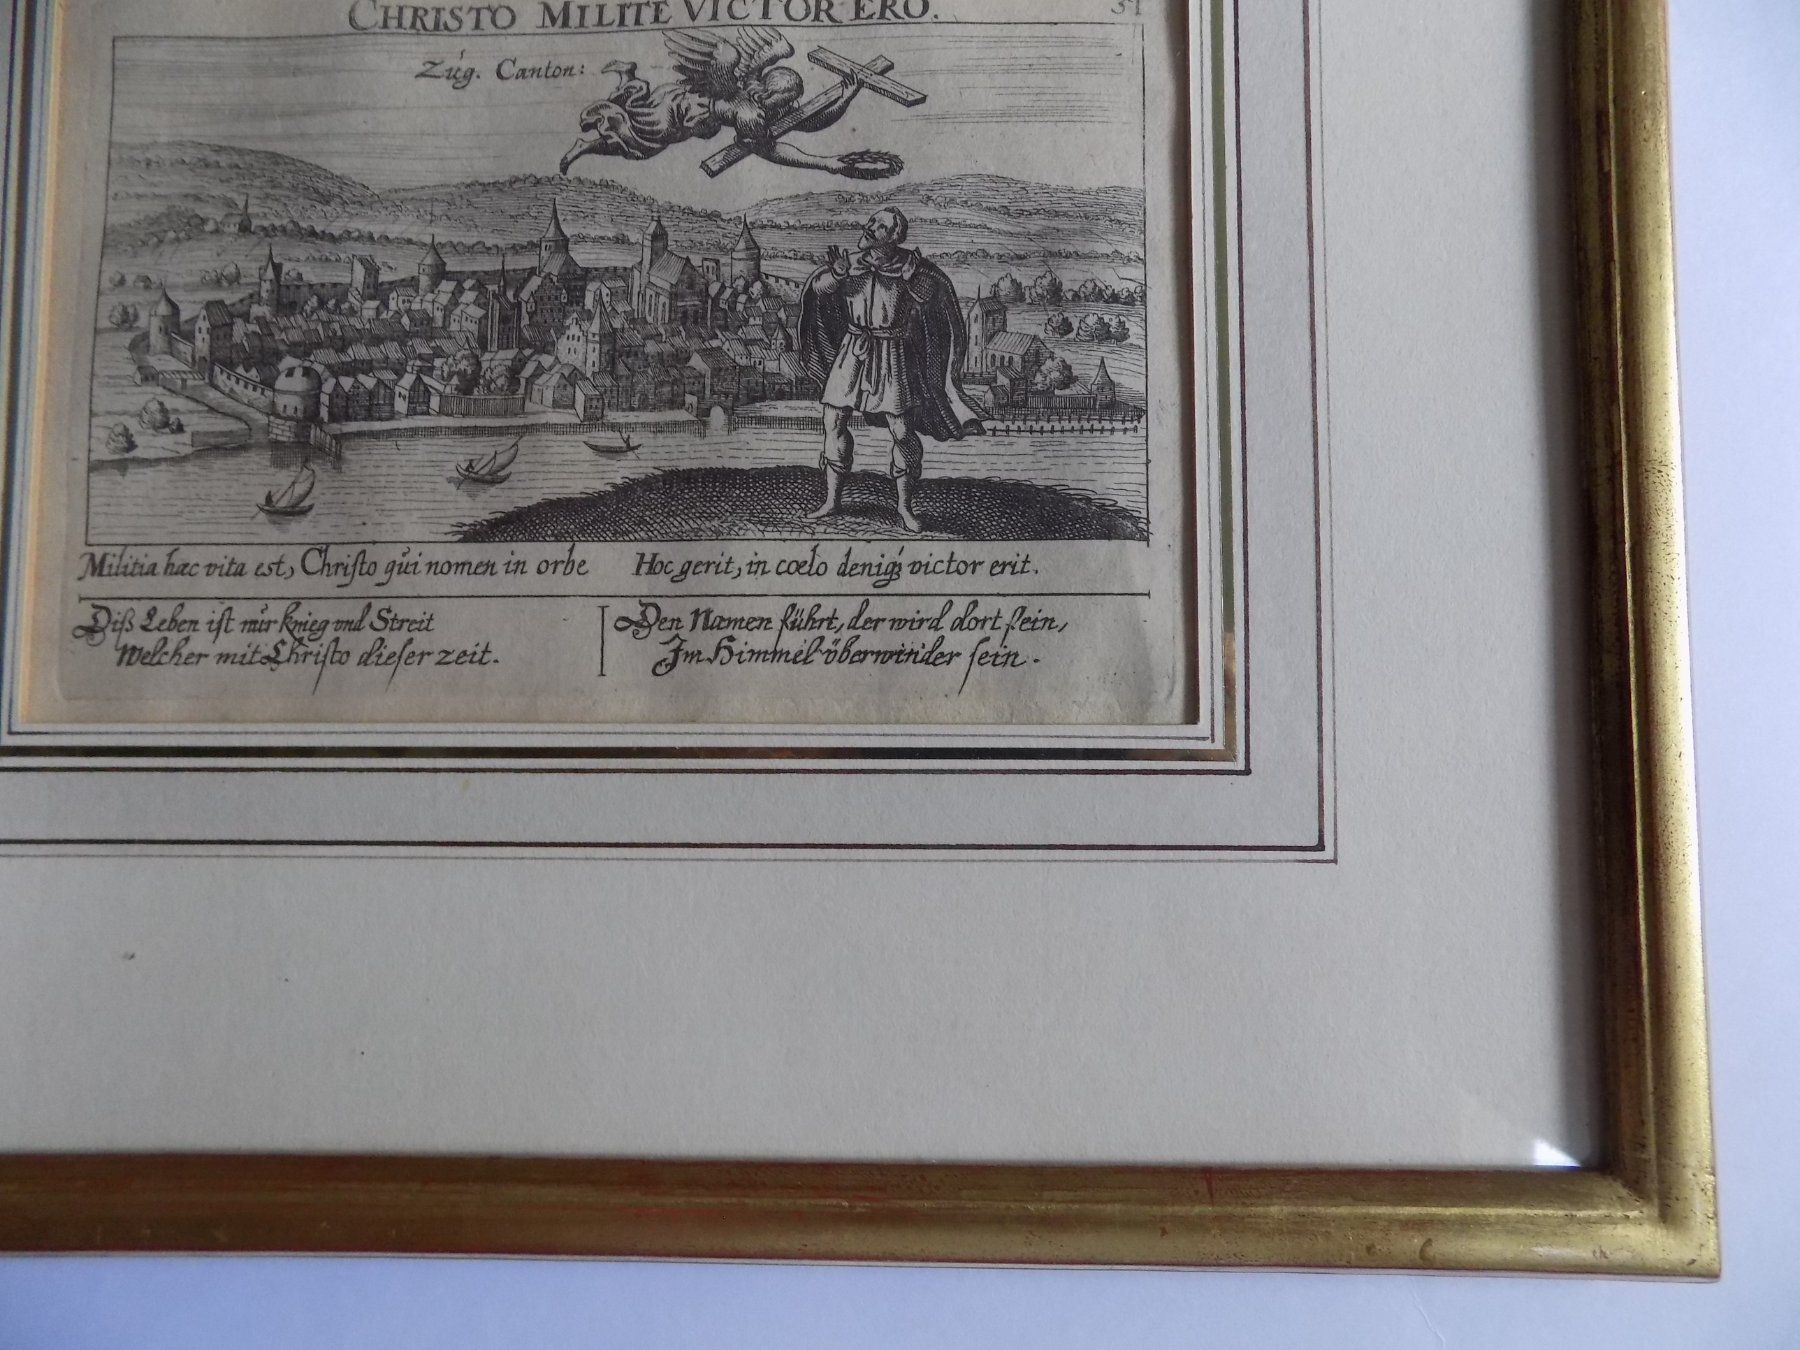 CHRISTO MILITE VICTOR ERO.
31
Zúg. Canton:
Militia hæc vita est, Chriſto qúi nomen in orbe
Hoc gerit, in cœlo deniqꝫ victor erit.
Diß Leben iſt núr krieg vnd Streit
Welcher mit Chriſto dieſer zeit.
Den Namen führt, der wird dort ſein,
Im Himmel überwinder ſein.